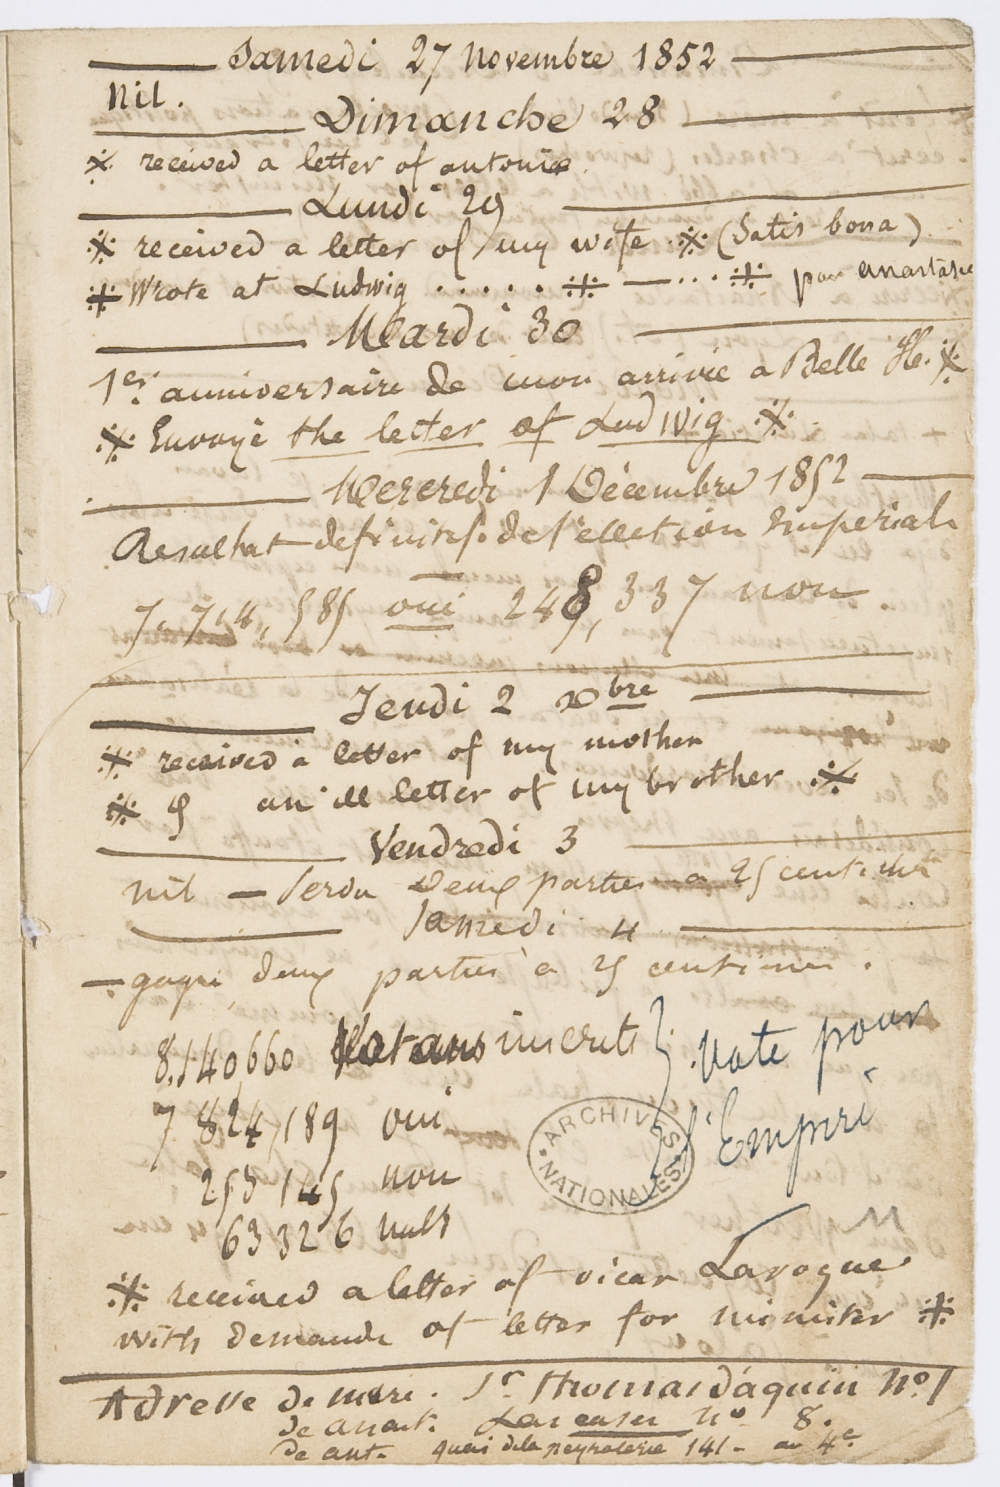 Samedi 27 Novembre 1852
Nil.
Dimanche 28
※ received a letter of antonie
Lundi 29
※ received a letter of my wife ※ (Satis bona)
※ Wrote at Ludwig . . . . . ※ — ... ※ pour anastasie
Mardi 30
1er anniversaire de mon arrivée a Belle Ile. ※
※ Envoyé the letter of Ludwig ※
Mercredi 1 Décembre 1852
Resultat definitif. de l'ellection Imperiale
7,714,585 oui 248,337 non.
Jeudi 2 xbre
※ received a letter of my mother
※ an ill letter of my brother ※
Vendredi 3
nil — Perdu Deux parties a 25 centimes
Samedi 4
— gagné deux parties à 25 centimes.
8.140660 Votans inscrits } Vote pour
7 824,189 oui l'Empire
253 145 non
ARCHIVES NATIONALES
63326 nuls
※ received a letter of vicar Laroque
with demande of letter for minister ※
Adresse de mère. St Thomas d'aquin No 1
de anast. no 8.
de ant. quai de la 141 - au 4e